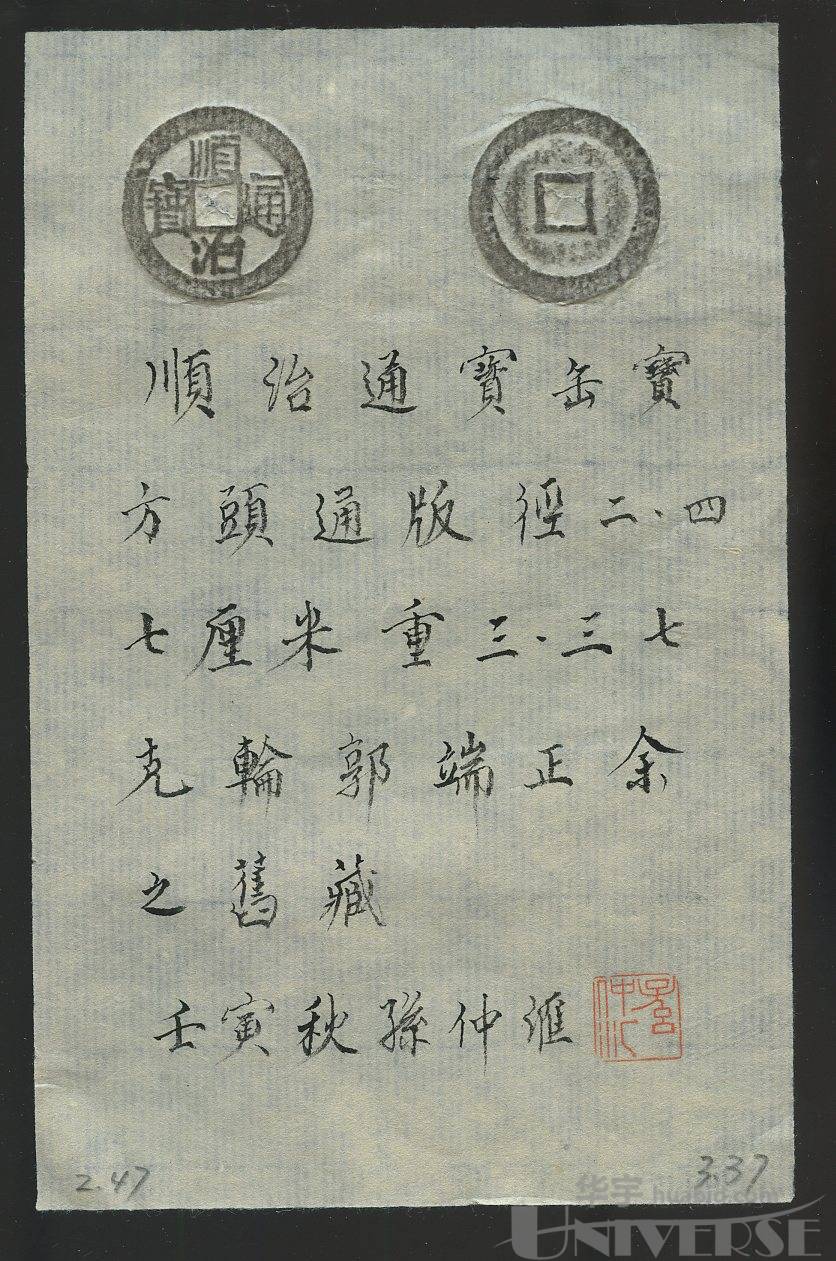 順治通寳
順治通寳缶寳
方頭通版徑二.四
七厘米重三.三七
克輪郭端正余
之舊藏
壬寅秋孫仲匯
孫仲匯
2.47
3.37
华宇 huabid.com
UNIVERSE